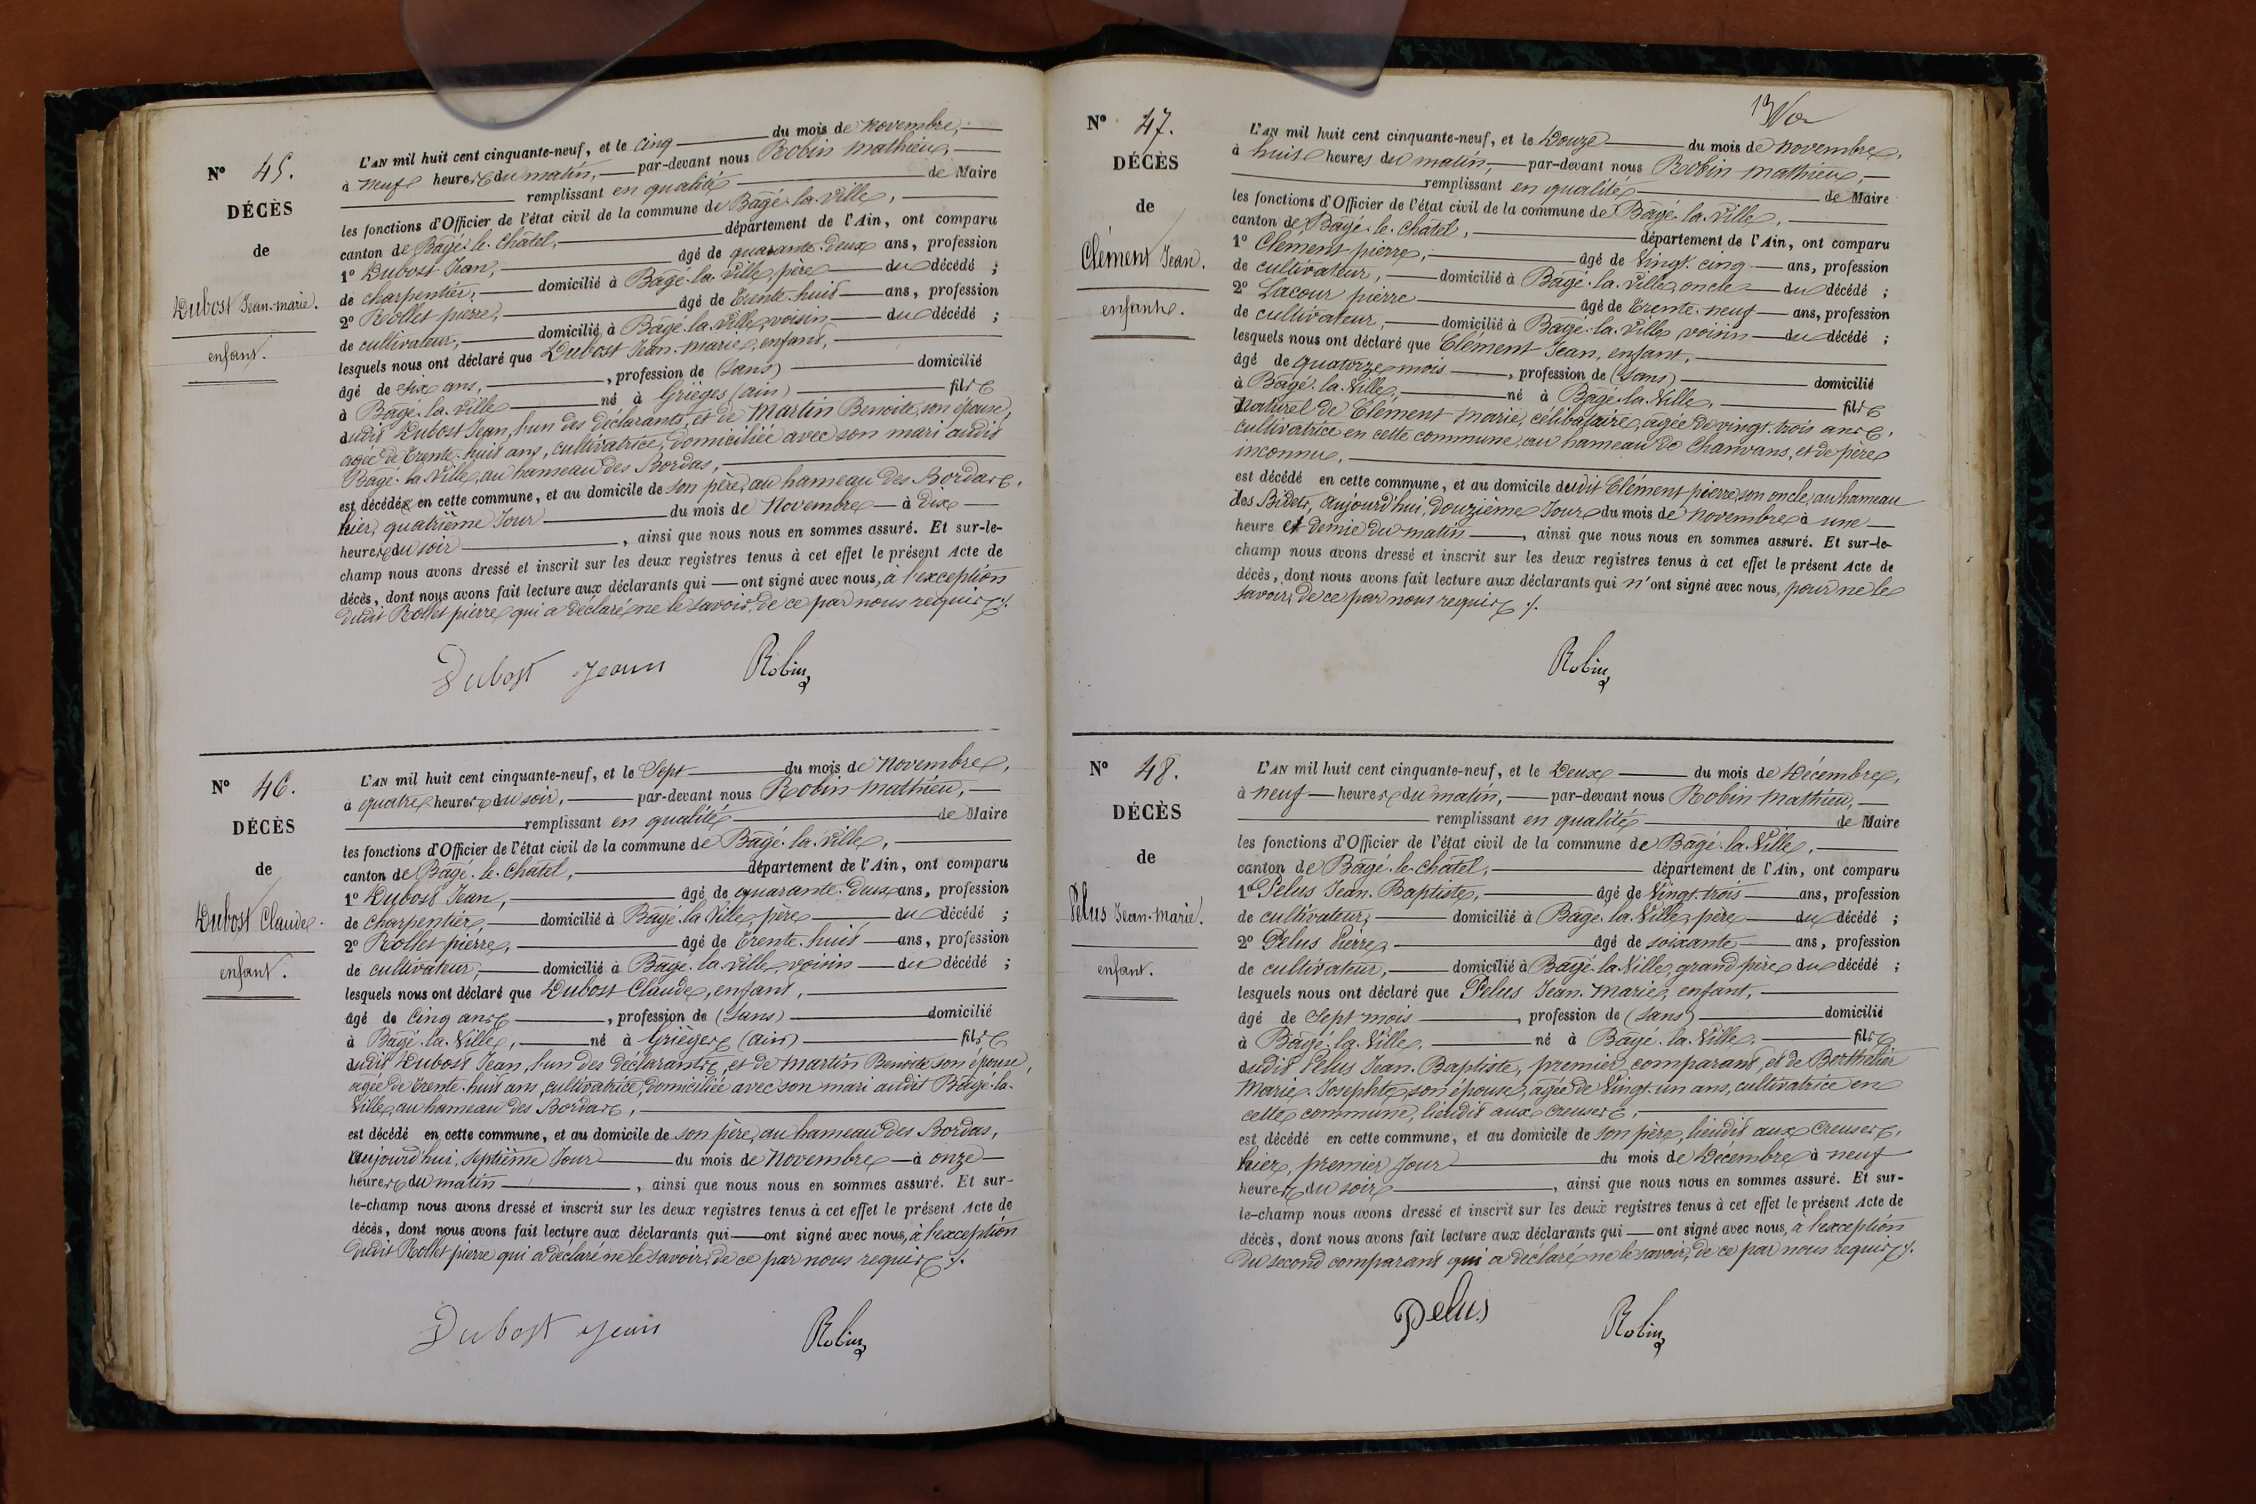 N° 45.
DÉCÈS
de
Dubost Jean-marie.
enfant.
L'AN mil huit cent cinquante-neuf, et le cinq du mois de novembre,
à neuf heures du matin, par-devant nous Robin mathieu,
remplissant en qualité de Maire
les fonctions d'Officier de l'état civil de la commune de Bâgé-la-Ville,
canton de Bâgé-le-Châtel, département de l'Ain, ont comparu
1° Dubost Jean, âgé de quarante-deux ans, profession
de charpentier, domicilié à Bâgé-la-Ville, père du décédé ;
2° Rollet pierre, âgé de trente-huit ans, profession
de cultivateur, domicilié à Bâgé-la-Ville, voisin du décédé ;
lesquels nous ont déclaré que Dubost Jean-marie, enfant,
âgé de six ans, , profession de (sans) domicilié
à Bâgé-la-Ville né à Grièges (ain) fils
dudit Dubost Jean, l'un des déclarants, et de Martin Benoite, son épouse,
agée de trente-huit ans, cultivatrice, domiciliée avec son mari audit
Bâgé-la-Ville, au hameau des Bordas,
est décédé en cette commune, et au domicile de son père, au hameau des Bordas,
hier, quatrième Jour du mois de Novembre à dix
heures du soir , ainsi que nous nous en sommes assuré. Et sur-le-
champ nous avons dressé et inscrit sur les deux registres tenus à cet effet le présent Acte de
décès, dont nous avons fait lecture aux déclarants qui ont signé avec nous, à l'exception
dudit Rollet pierre qui a déclaré ne le savoir, de ce par nous requis ./.
Dubost Jean Robin
N° 46.
DÉCÈS
de
Dubost Claude.
enfant.
L'AN mil huit cent cinquante-neuf, et le Sept du mois de novembre,
à quatre heures du soir, par-devant nous Robin mathieu,
remplissant en qualité de Maire
les fonctions d'Officier de l'état civil de la commune de Bâgé-la-ville,
canton de Bâgé-le-Châtel, département de l'Ain, ont comparu
1° Dubost Jean, âgé de quarante-deux ans, profession
de charpentier, domicilié à Bâgé-la-Ville, père du décédé ;
2° Rollet pierre, âgé de trente-huit ans, profession
de cultivateur, domicilié à Bâgé-la-ville, voisin du décédé ;
lesquels nous ont déclaré que Dubost Claude, enfant,
âgé de cinq ans , profession de (sans) domicilié
à Bâgé-la-Ville, né à Grièges (ain) fils
dudit Dubost Jean, l'un des déclarants, et de Martin Benoite son épouse,
agée de trente-huit ans, cultivatrice, domiciliée avec son mari audit Bâgé-la-
Ville, au hameau des Bordas,
est décédé en cette commune, et au domicile de son père, au hameau des Bordas,
aujourd'hui, septième Jour du mois de Novembre à onze
heures du matin , ainsi que nous nous en sommes assuré. Et sur-
le-champ nous avons dressé et inscrit sur les deux registres tenus à cet effet le présent Acte de
décès, dont nous avons fait lecture aux déclarants qui ont signé avec nous, à l'exception
dudit Rollet pierre qui a déclaré ne le savoir, de ce par nous requis ./.
Dubost Jean Robin
13
N° 47.
DÉCÈS
de
Clément Jean.
enfant.
L'AN mil huit cent cinquante-neuf, et le Douze du mois de novembre,
à huit heures du matin, par-devant nous Robin mathieu,
remplissant en qualité de Maire
les fonctions d'Officier de l'état civil de la commune de Bâgé-la-Ville,
canton de Bâgé-le-Châtel, département de l'Ain, ont comparu
1° Clément pierre, âgé de Vingt-cinq ans, profession
de cultivateur, domicilié à Bâgé-la-Ville, oncle du décédé ;
2° Lacour pierre âgé de trente-neuf ans, profession
de cultivateur, domicilié à Bâgé-la-Ville, voisin du décédé ;
lesquels nous ont déclaré que Clément Jean, enfant,
âgé de quatorze mois , profession de (sans) domicilié
à Bâgé-la-Ville, né à Bâgé-la-Ville, fils
naturel de Clément marie, célibataire, agée de vingt-trois ans,
cultivatrice en cette commune, au hameau de Chanvans, et de père
inconnu,
est décédé en cette commune, et au domicile dudit Clément pierre, son oncle, au hameau
des Bidets, aujourd'hui, douzième Jour du mois de novembre à une
heure et demie du matin , ainsi que nous nous en sommes assuré. Et sur-le-
champ nous avons dressé et inscrit sur les deux registres tenus à cet effet le présent Acte de
décès, dont nous avons fait lecture aux déclarants qui n'ont signé avec nous, pour ne le
savoir, de ce par nous requis ./.
Robin
N° 48.
DÉCÈS
de
Pelus Jean-Marie.
enfant.
L'AN mil huit cent cinquante-neuf, et le Deux du mois de Décembre,
à neuf heures du matin, par-devant nous Robin mathieu,
remplissant en qualité de Maire
les fonctions d'Officier de l'état civil de la commune de Bâgé-la-Ville,
canton de Bâgé-le-châtel, département de l'Ain, ont comparu
1° Pelus Jean-Baptiste, âgé de Vingt-trois ans, profession
de cultivateur, domicilié à Bâgé-la-Ville, père du décédé ;
2° Pelus Pierre, âgé de soixante ans, profession
de cultivateur, domicilié à Bâgé-la-Ville, grand père du décédé ;
lesquels nous ont déclaré que Pelus Jean-Marie, enfant,
âgé de Sept mois , profession de (sans) domicilié
à Bâgé-la-Ville, né à Bâgé-la-Ville, fils
dudit Pelus Jean-Baptiste, premier comparant, et de Berthelier
Marie-Josephte, son épouse, agée de Vingt-un ans, cultivatrice en
cette commune, lieudit aux creuses,
est décédé en cette commune, et au domicile de son père, lieudit aux creuses,
hier, premier Jour du mois de Décembre à neuf
heures du soir , ainsi que nous nous en sommes assuré. Et sur-
le-champ nous avons dressé et inscrit sur les deux registres tenus à cet effet le présent Acte de
décès, dont nous avons fait lecture aux déclarants qui ont signé avec nous, à l'exception
du second comparant qui a déclaré ne le savoir, de ce par nous requis ./.
Pelus Robin